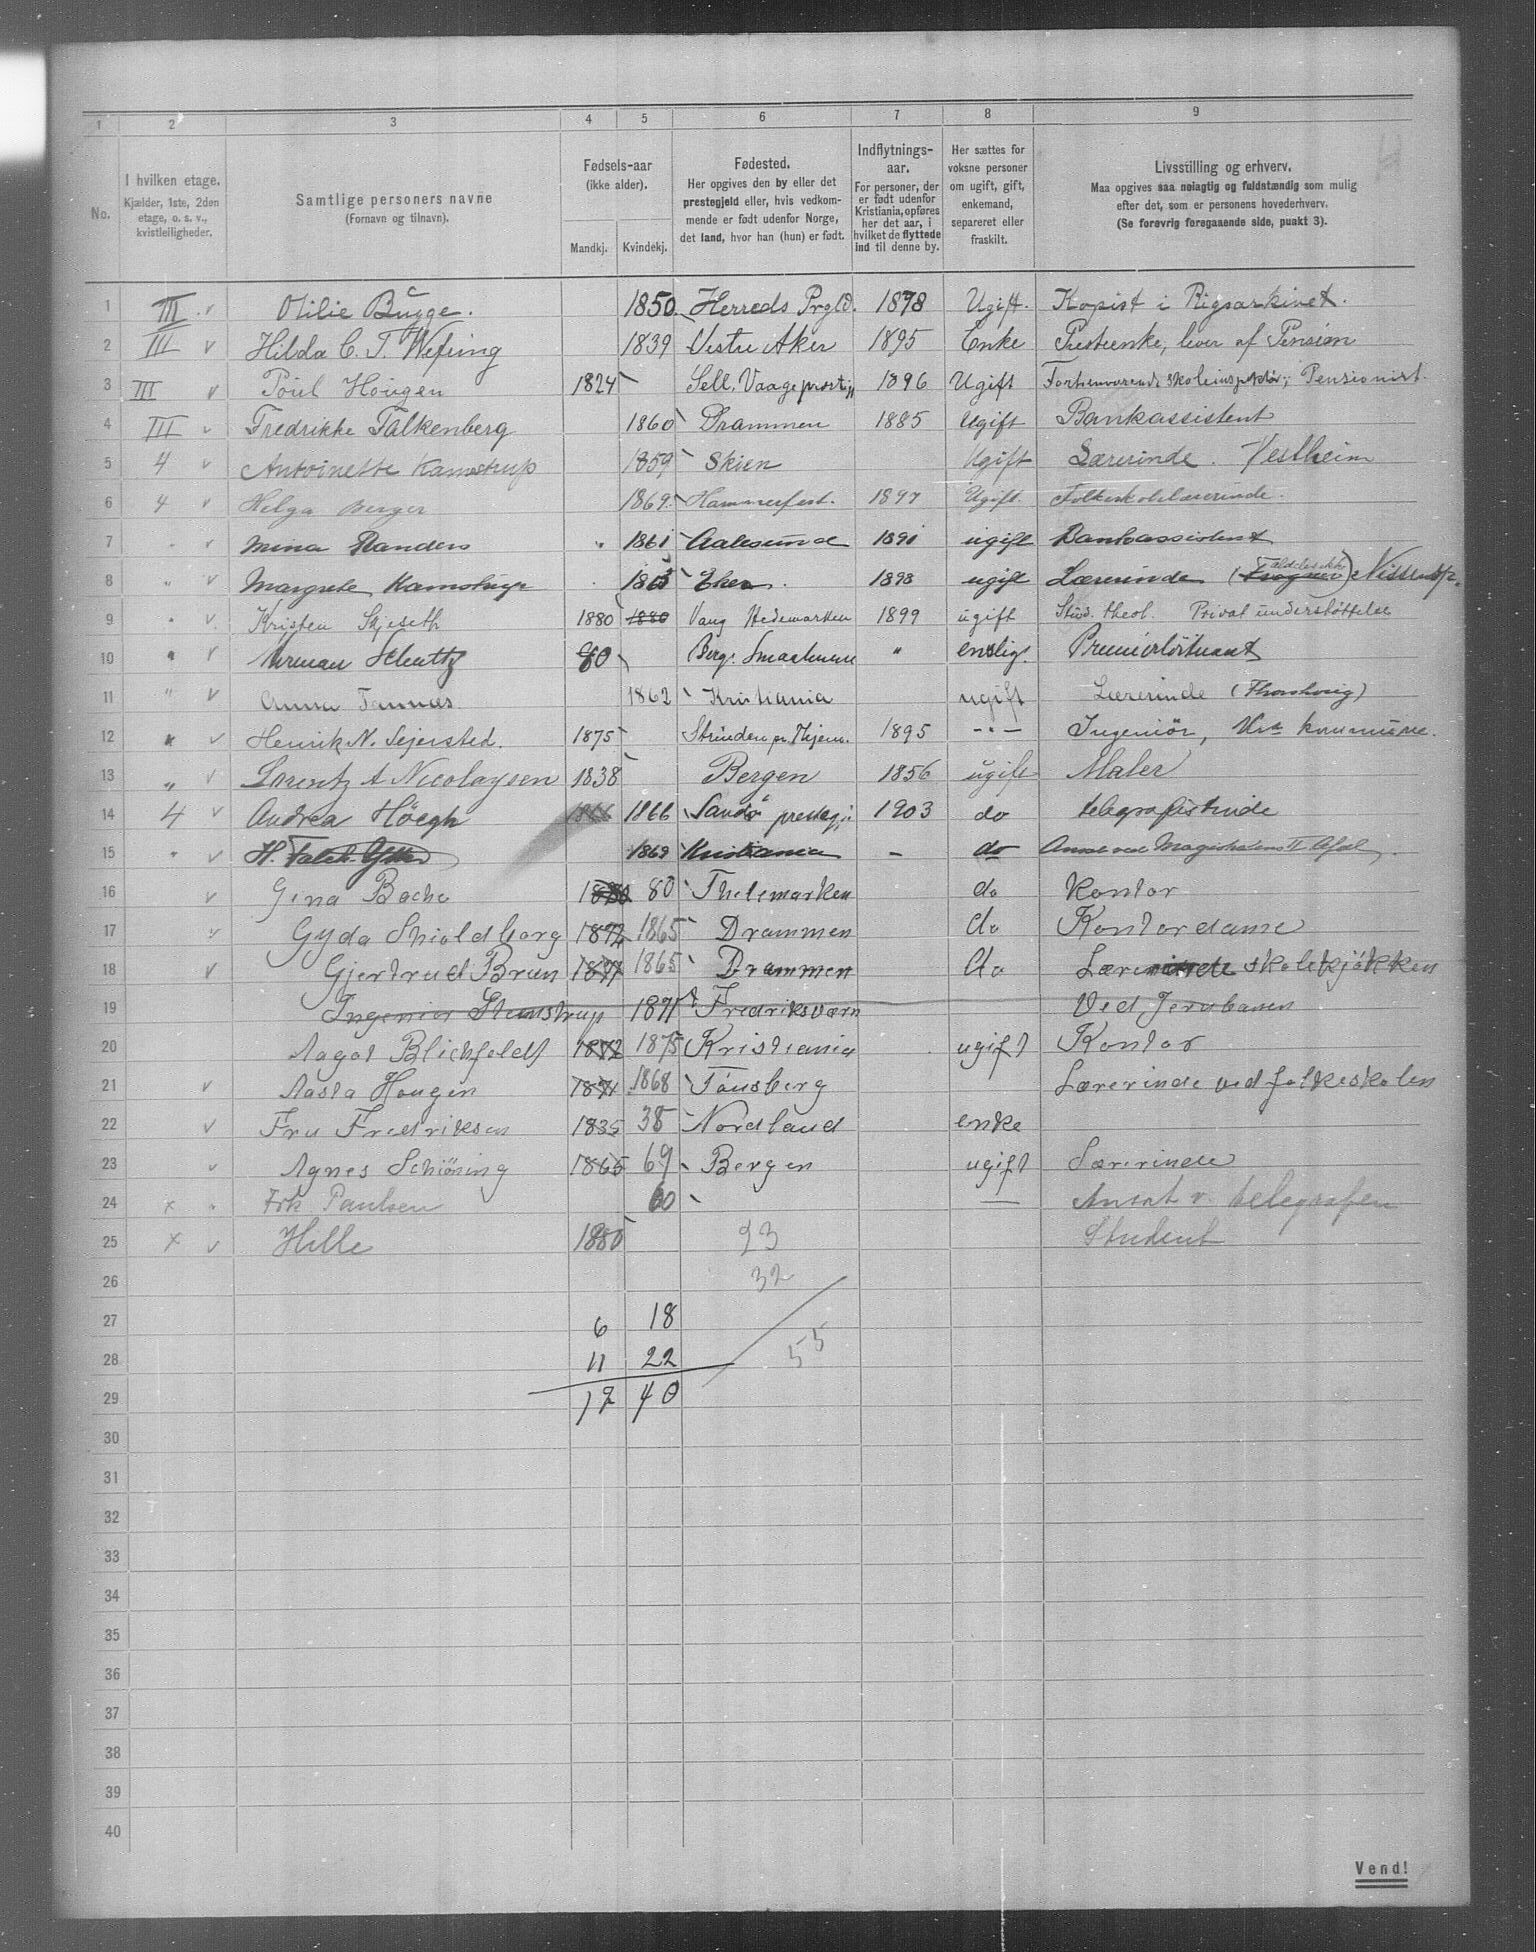 1 2 3 4 5 6 7 8 9
No.
I hvilken etage.
Kjælder, 1ste, 2den
etage, o. s. v.,
kvistleiligheder.
Samtlige personers navne
(Fornavn og tilnavn).
Fødsels-aar
(ikke alder).
Mandkj. Kvindekj.
Fødested.
Her opgives den by eller det
prestegjeld eller, hvis vedkom-
mende er født udenfor Norge,
det land, hvor han (hun) er født.
Indflytnings-
aar.
For personer, der
er født udenfor
Kristiania, opføres
her det aar, i
hvilket de flyttede
ind til denne by.
Her sættes for
voksne personer
om ugift, gift,
enkemand,
separeret eller
fraskilt.
Livsstilling og erhverv.
Maa opgives saa nøiagtig og fuldstændig som mulig
efter det, som er personens hovederhverv.
(Se forøvrig foregaaende side, punkt 3).
1 III v Otilie Bugge. 1850 Herreds Prgld. 1878 Ugift. Kopist i Rigsarkivet.
2 III v Hilda C. T. Wefring 1839 Vestre Aker 1895 Enke Presteenke, lever af Pension
3 III v Poul Hougen 1824 Sell, Vaage prestgj 1896 Ugift Forhenværende skoleinspektør; Pensionist.
4 III v Fredrikke Falkenberg 1860 Drammen 1885 Ugift Bankassistent
5 4 v Antoinette Kamstrup 1859 Skien Ugift Lærerinde. Vestheim
6 4 v Helga Berger 1869 Hammerfest. 1897 Ugift. Folkeskolelærerinde.
7 " v Mina Randers " 1861 Aalesund 1891 ugift Bankassistent
8 " v Margrete Kamstrup 1865 Eker. 1898 ugift Lærerinde (Frogner) Nissens
9 " v Kristen Skjeseth 1880 1880 Vang Hedemarken 1899 ugift Stud. theol. Privat understøttelse
10 " v Herman Schultz 80 Berg. Smaalenene " enslig. Premierløitnant
11 " v Anna Tannæs 1862 Kristiania ugift Lærerinde (Thorshaug)
12 " v Henrik N. Sejersted. 1875 Strinden pr. Thjem. 1895 - " - Ingeniør, Kra kommune.
13 " v Lorentz A Nicolaysen 1838 Bergen 1856 ugift Maler
14 4 v Andrea Höegh 1866 1866 Sandø prestegj. 1903 do telegrafistinde
15 " v H. Falch 1869 Kristiania - do Ansat ved Magistratens II Afdel.
16 v Gina Bache 1880 80 Thelemarken do Kontor
17 v Gyda Skioldborg 1872 1865 Drammen do Kontordame
18 v Gjertrud Brun 1877 1865 Drammen do Lærerinde skolekjøkken
19 Ingenia Stenstrup 1871 Fredriksværn Ved Jernbanen
20 Aagot Blichfeldt 1872 1875 Kristiania ugift Kontor
21 v Aasta Hougen 1871 1868 Tönsberg Lærerinde ved folkeskolen
22 v Fru Fredriksen 1835 38 Nordland enke
23 v Agnes Schiöning 1865 69 Bergen ugift Lærerinde
24 x " Frk Paulsen 60 — Ansat v. telegrafen
25 x v Hille 1880 23 Student
26 32
27 6 18
28 11 22 55
29 17 40
30
31
32
33
34
35
36
37
38
39
40
Vend!